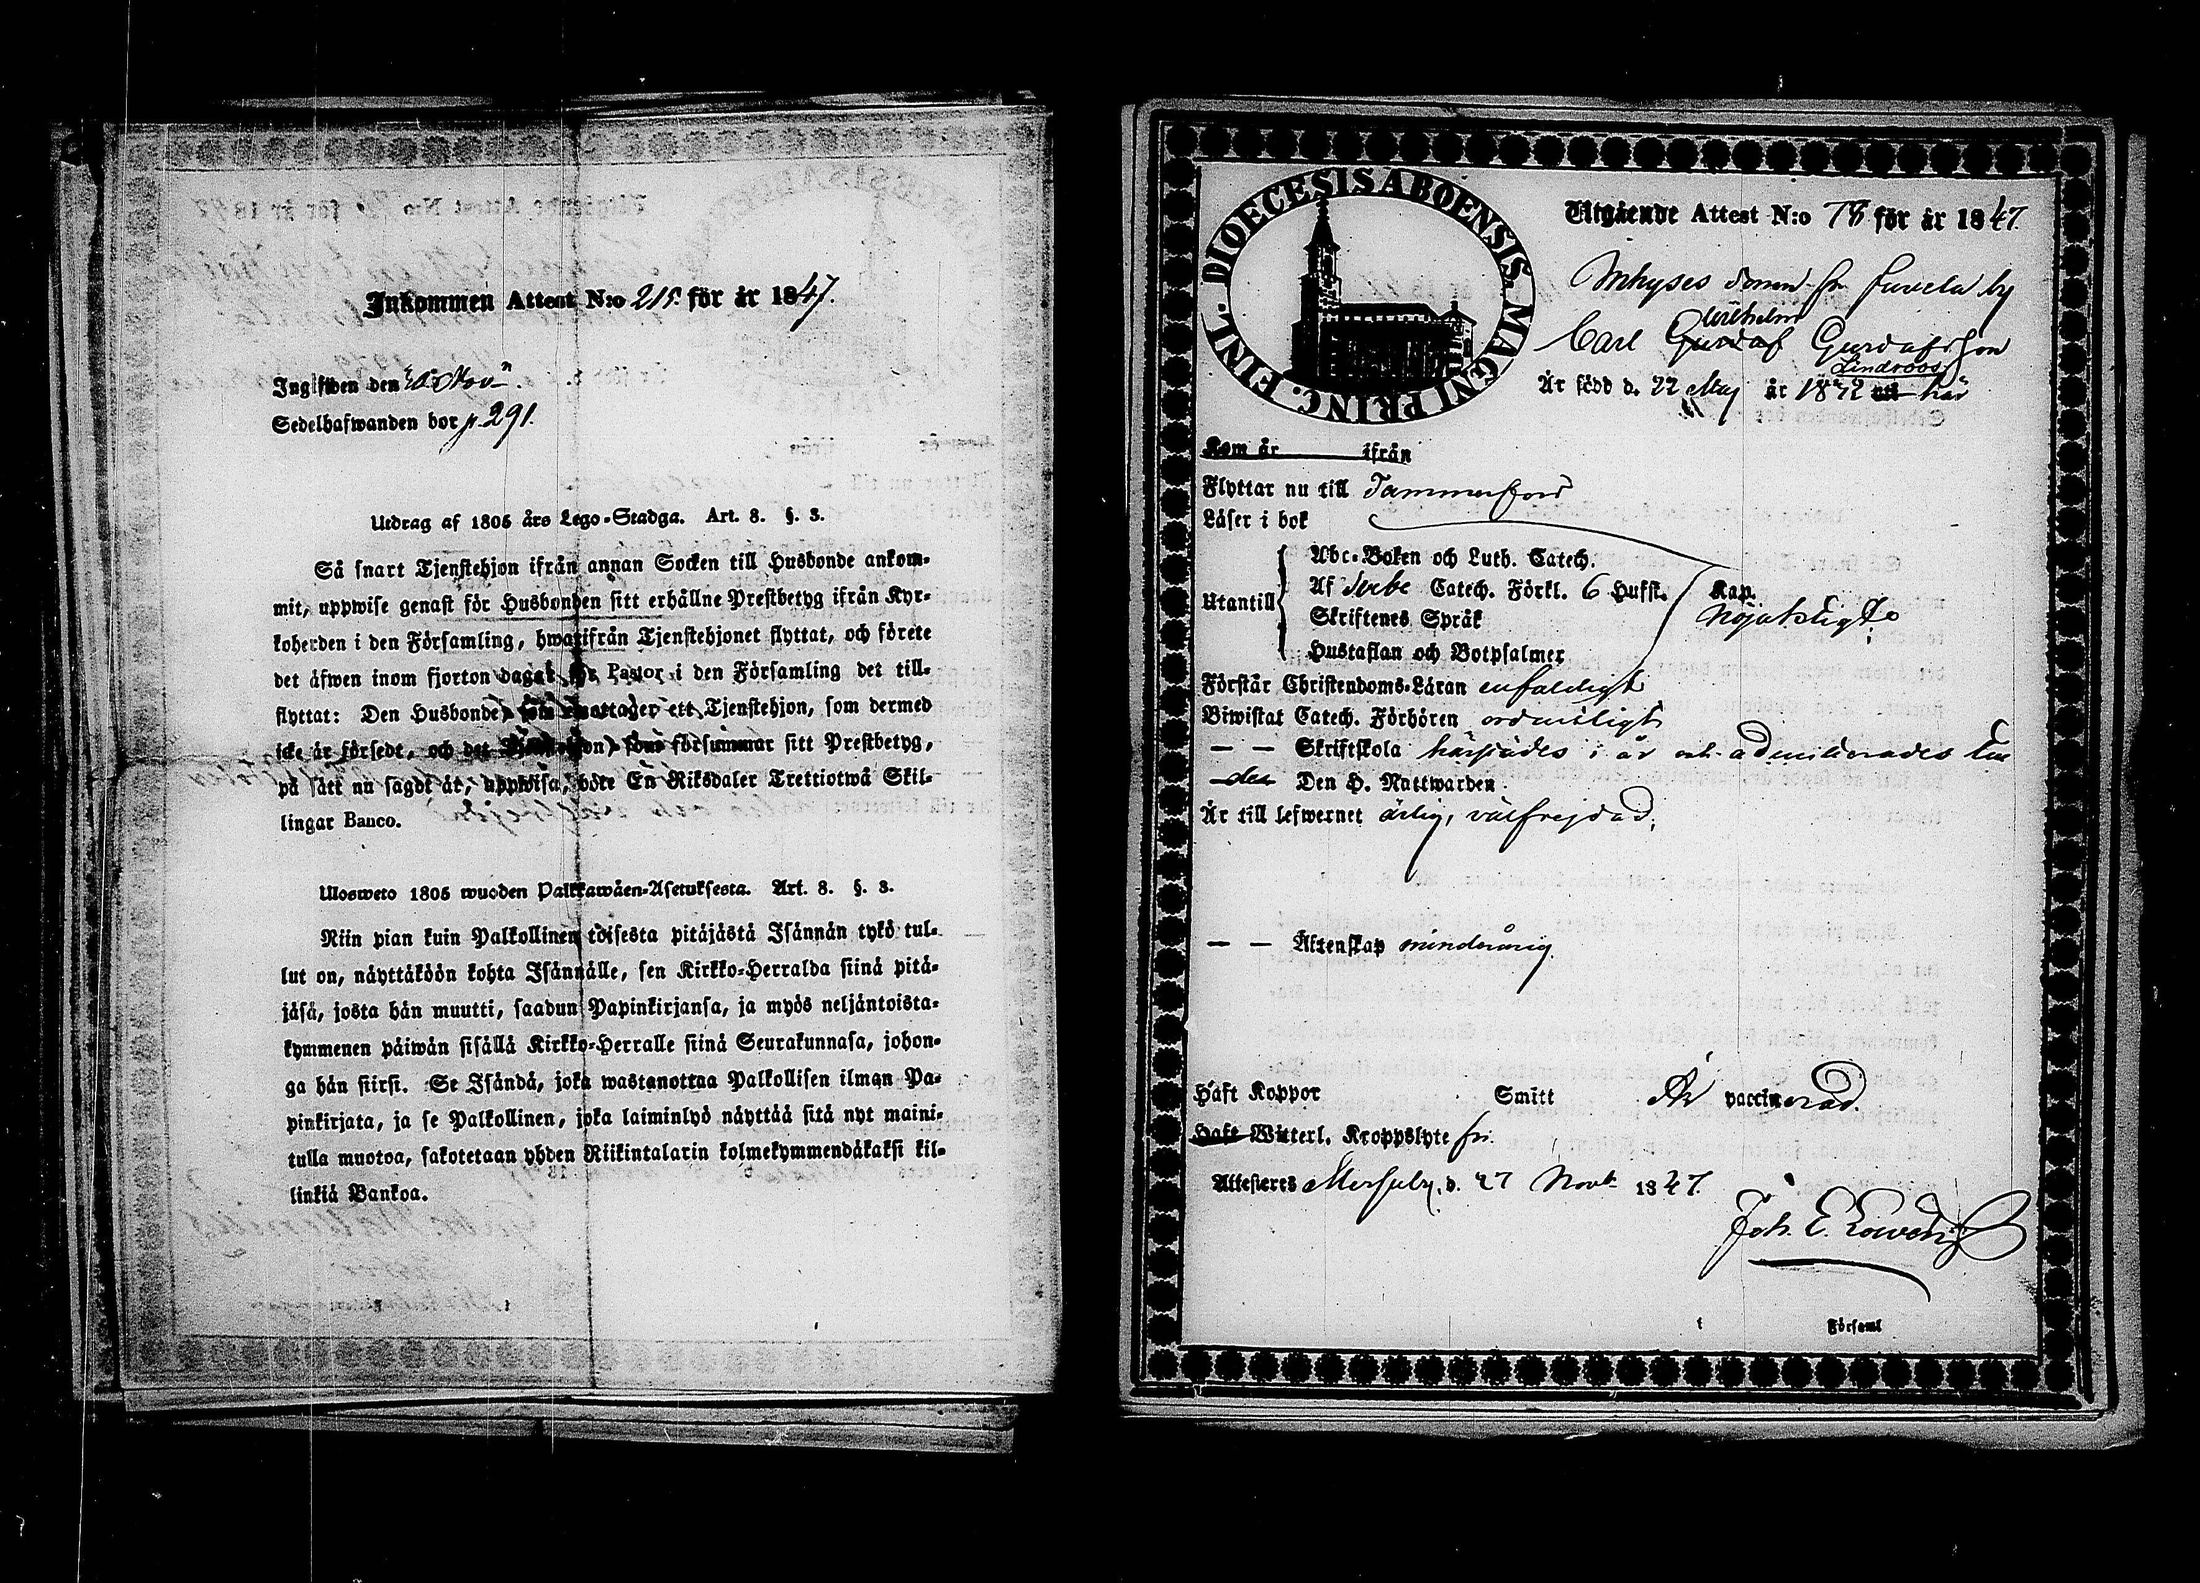 Inkommen Attest N:o 215 för år 1847.
Ingifwen den 30 Nov
Sedelhafwanden bor p. 291.
Utdrag af 1805 års Lego-Stadga. Art. 8. §. 3.
Så snart Tjenstehjon ifrån annan Socken till Husbonde ankom-
mit, uppwise genast för Husbonden sitt erhållne Prestbetyg ifrån Kyr-
koherden i den Församling, hwarifrån Tjenstehjonet flyttat, och förete
det äfwen inom fjorton dagar för Pastor i den Församling det till-
flyttat: Den Husbonde, som emottager ett Tjenstehjon, som dermed
icke är försedt, och det Tjenstehjon, som försummar sitt Prestbetyg,
på sätt nu sagdt är, uppwisa, böte En Riksdaler Trettiotwå Skil-
lingar Banco.
Ulosweto 1805 wuoden Palkkawäen-Asetuksesta. Art. 8. §. 3.
Niin pian kuin Palkollinen toisesta pitäjästä Isännän tykö tul-
lut on, näyttäköön kohta Isännälle, sen Kirkko-Herralda siinä pitä-
jäsä, josta hän muutti, saadun Papinkirjansa, ja myös neljäntoista-
kymmenen päiwän sisällä Kirkko-Herralle siinä Seurakunnasa, johon-
ga hän siirsi. Se Isändä, joka wastanottaa Palkollisen ilman Pa-
pinkirjata, ja se Palkollinen, joka laiminlyö näyttää sitä nyt maini-
tulla muotoa, sakotetaan yhden Riikintalarin kolmekymmendäkaksi kil-
linkiä Bankoa.
DIOECESIS ABOENSIS MAGNI PRINC. FINL.
Utgående Attest N:o 78 för år 1847.
Inhyses sonen fr. Juvela by
Wilhelm
Carl Gustaf Gustafsson
Lindroos
Är född d. 22 Maj år 1832 här
Kom år ifrån
Flyttar nu till Tammerfors
Läser i bok
Utantill
Abc-Boken och Luth. Catech.
Af Svebe Catech. Förkl. 6 Hufst. Kap.
Skriftenes Språk nöjaktligt
Hustaflan och Botpsalmer
Förstår Christendoms-Läran enfaldigt
Biwistat Catech. Förhören ordentligt
— — Skriftskola härstädes i år och admitterades
Den H. Nattwarden.
Är till lefwernet ärlig, välfrejdad,
— — Äktenskap minderårig.
Haft Koppor Smitt Är vaccinerad.
Haft Witterl. Kroppslyte fri.
Attesteres d. 27 Novb. 1847.
Församl